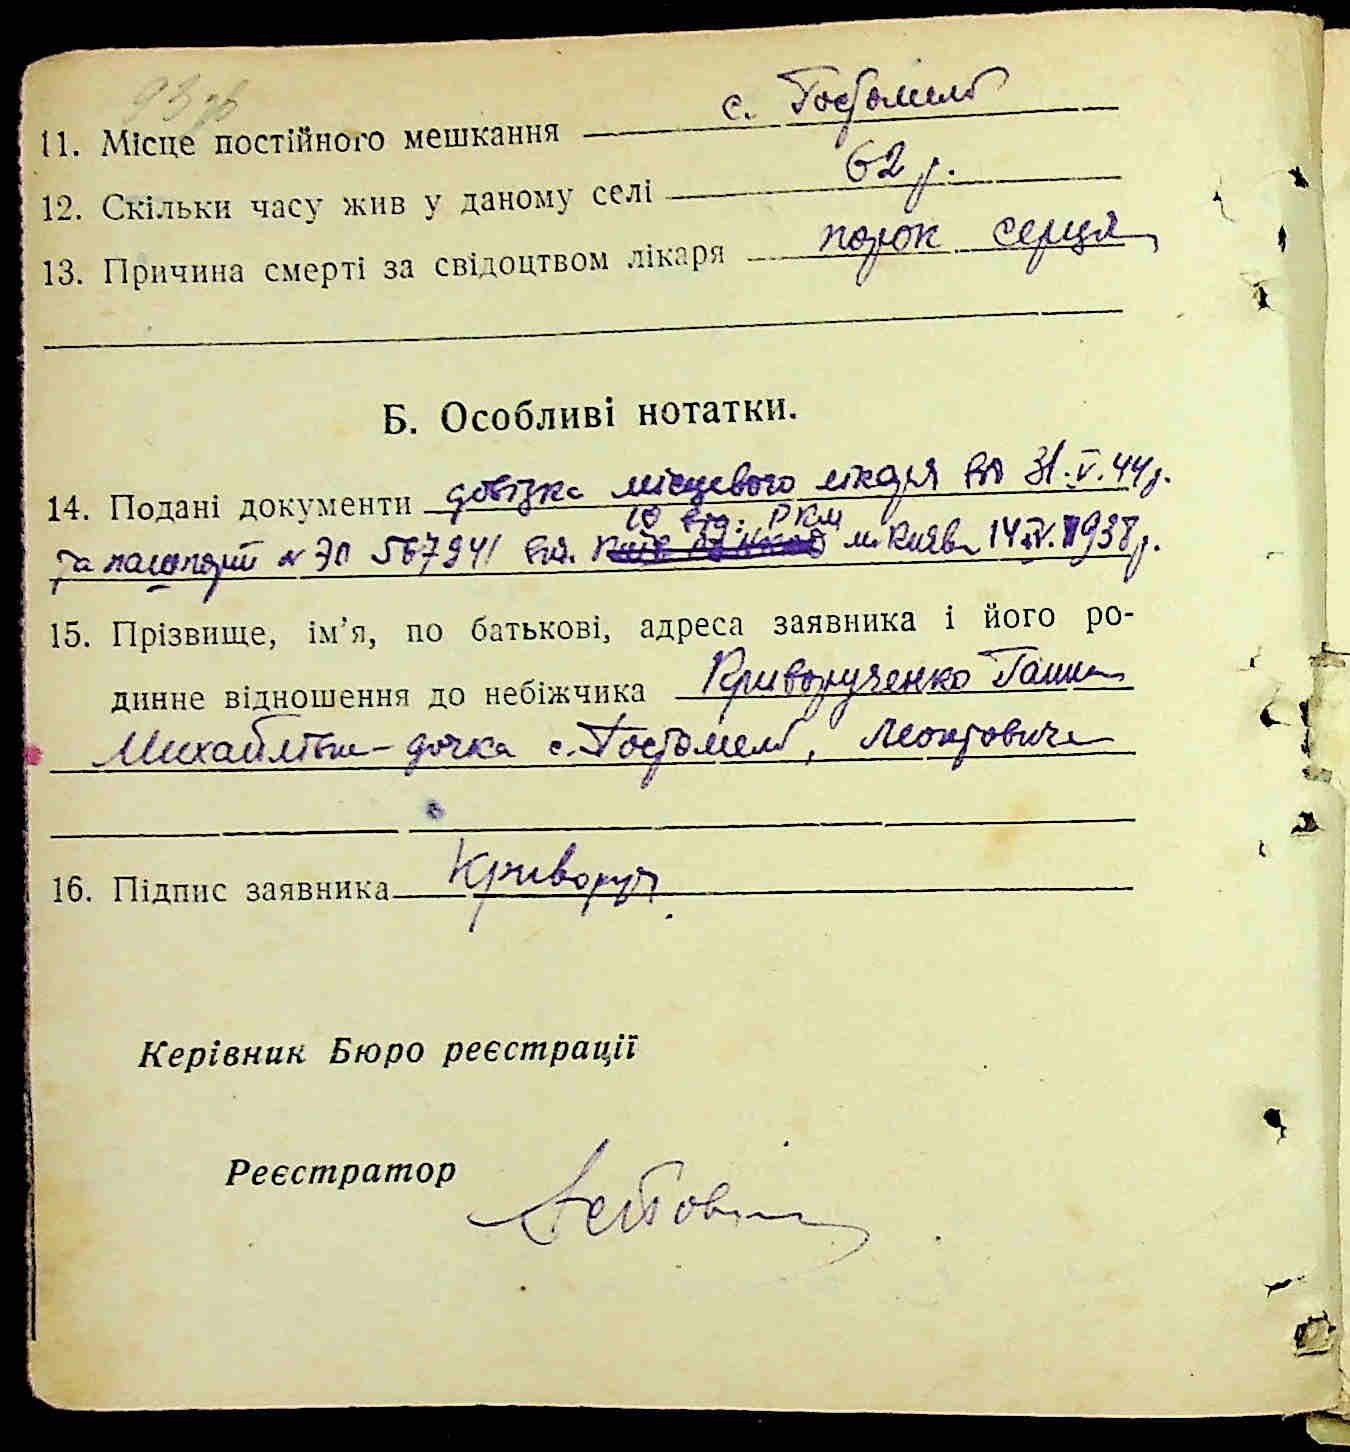 93 зв
11. Місце постійного мешкання с. Гостомель
12. Скільки часу жив у даному селі 62 р.
13. Причина смерті за свідоцтвом лікаря порок серця
Б. Особливі нотатки.
14. Подані документи довізка місцевого лікаря від 31.V.44 р.
10 від. РКМ
та паспорт № ЭП 567941 вид. м. Києва 14.IV.1938 р.
15. Прізвище, ім’я, по батькові, адреса заявника і його ро-
динне відношення до небіжчика Криворученко Ганна
Михайлівна – дочка с. Гостомель, Леонтовича
16. Підпис заявника Криворуч
Керівник Бюро реєстрації
Реєстратор